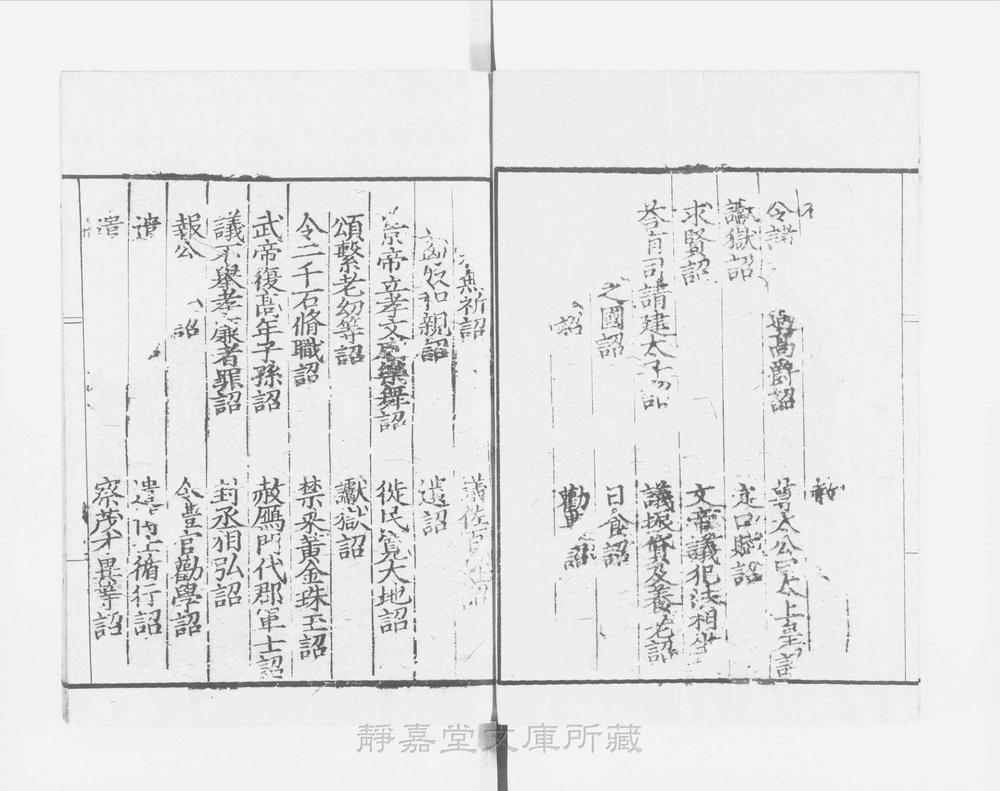 令諸 高爵詔 尊太公曰太上皇詔
讞獄詔 定口賦詔
求賢詔 文帝議犯法相坐
荅有司請建太子 議振貸及養老詔
之國詔 日食詔
詔 勸 詔
無祈詔 議佐百
和親詔 遺詔
景帝立孝文廟樂舞詔 徙民寬大地詔
頌繫老幼等詔 讞獄詔
令二千石脩職詔 禁采黃金珠玉詔
武帝復高年子孫詔 赦鴈門代郡軍士詔
議不舉孝廉者罪詔 封丞相弘詔
報公 詔 令豊官勸學詔
遣 遣 士循行詔
遣 察茂才異等詔
靜嘉堂文庫所藏